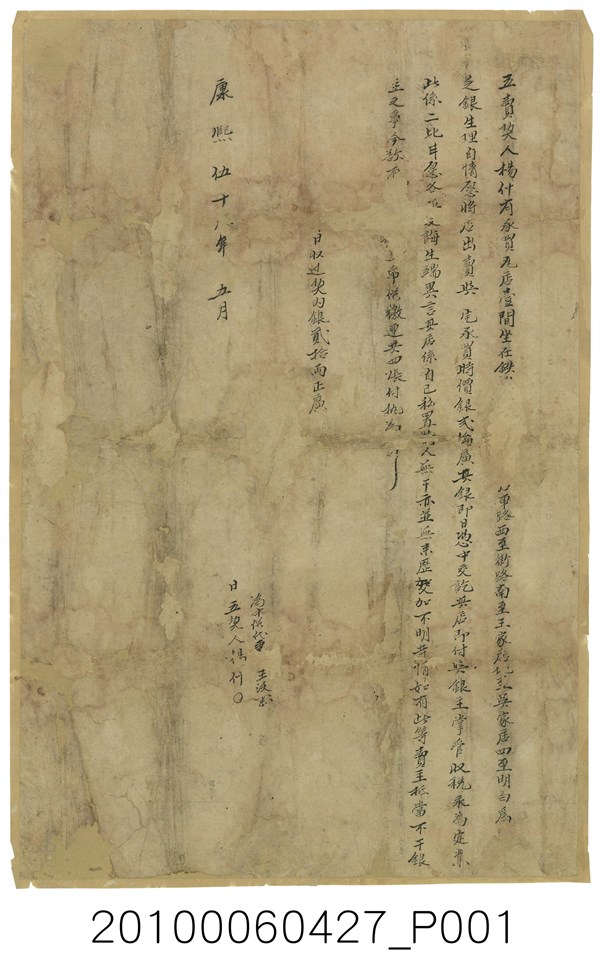 立賣契人楊什有承買瓦店壹間坐在鉄 車路西至街路南至王家店北至吳家店四至明白為
乏銀生理自情愿將店出賣與 宅承買時價銀弍拾廣其銀即日憑中交訖其店即付與銀主掌管收稅永為定業
此係二比甘愿各 反誨生端異言其店係自己私置 人無干亦並無來歷交加不明等情如有此等賣主抵當不干銀
主之事今欲 立帋併繳連共四張付執為
日收过契內銀貳拾兩正廣
為中併代書 王
康熙伍十八年五月 日立契人楊什
20100060427_P001